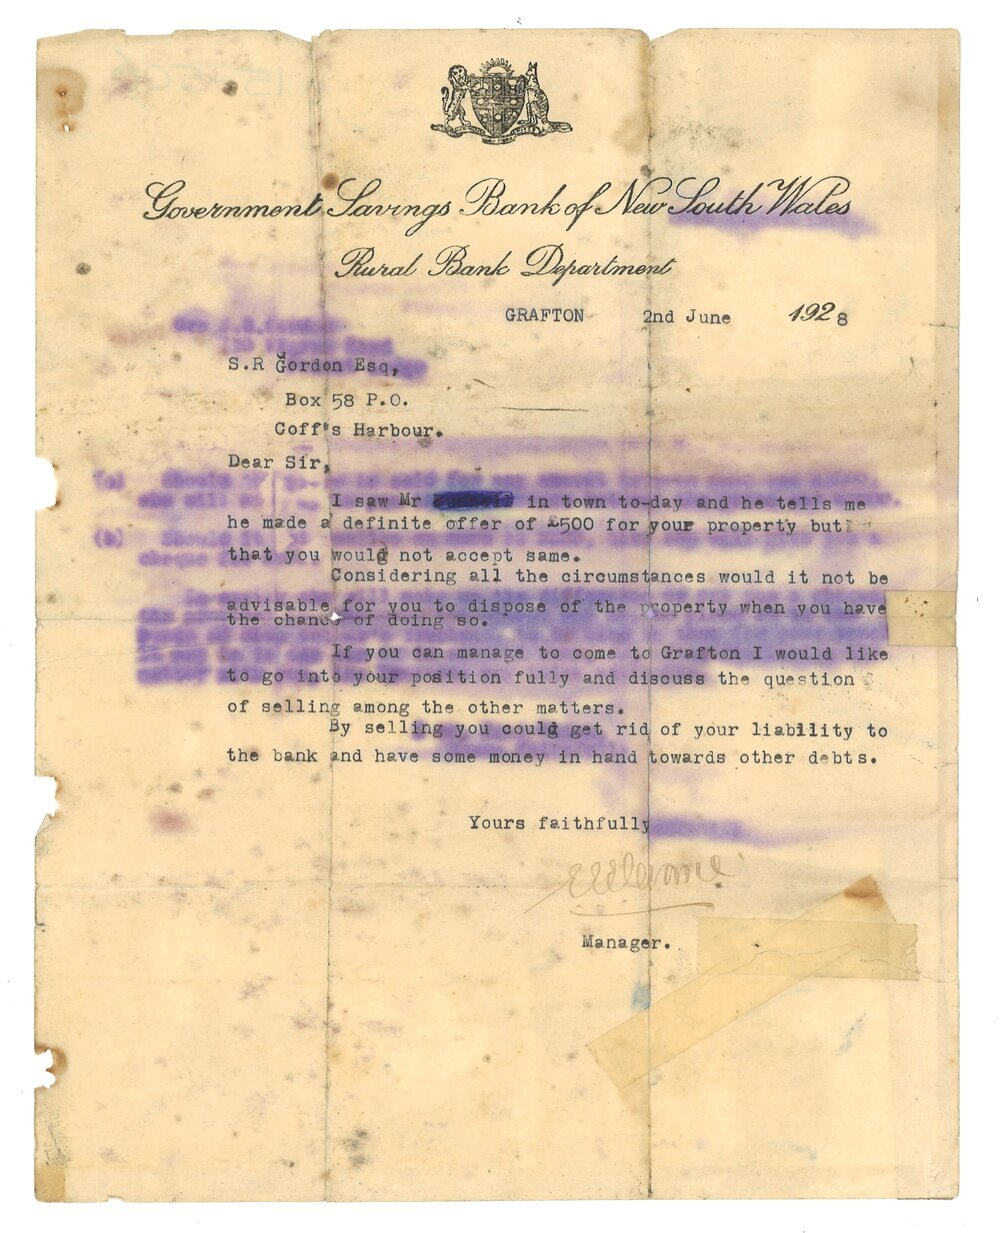 Government Savings Bank of New South Wales
Rural Bank Department
GRAFTON 2nd June 1928
S.R Gordon Esq,
Box 58 P.O.
Coff's Harbour.
Dear Sir,
I saw Mr in town to-day and he tells me
he made a definite offer of £500 for your property but
that you would not accept same.
Considering all the circumstances would it not be
advisable for you to dispose of the property when you have
the chance of doing so.
If you can manage to come to Grafton I would like
to go into your position fully and discuss the question
of selling among the other matters.
By selling you could get rid of your liability to
the bank and have some money in hand towards other debts.
Yours faithfully
Manager.